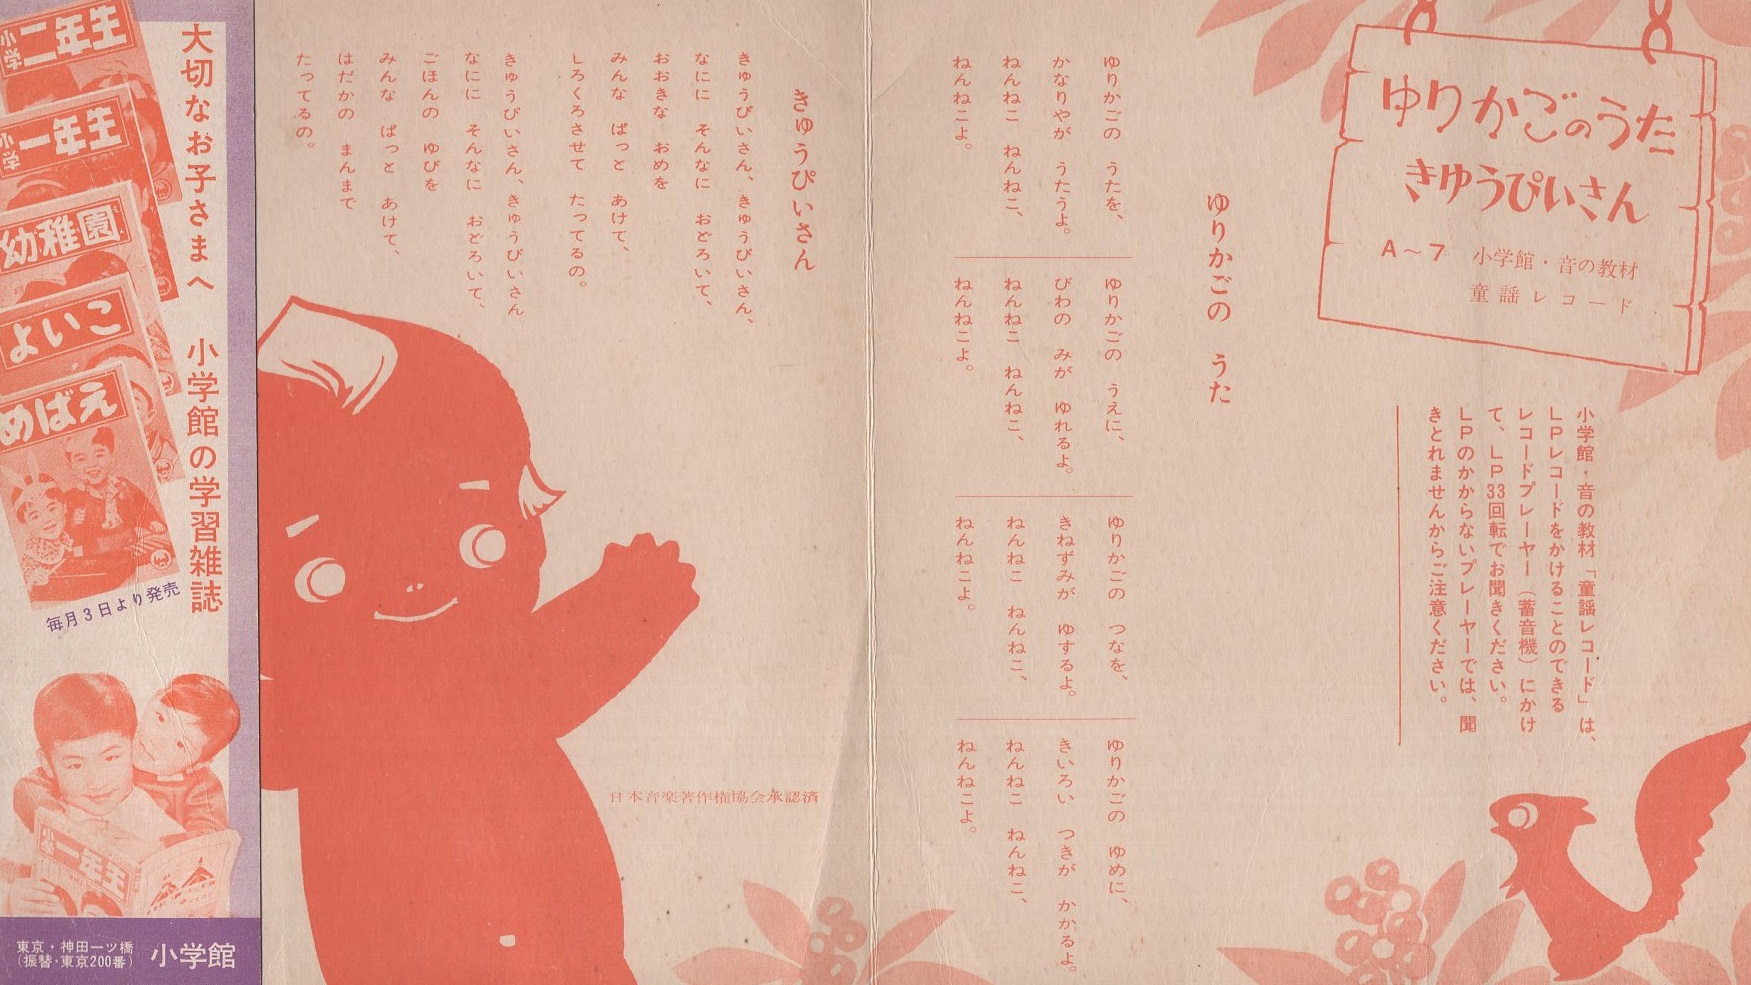 ゆりかごのうた
きゆうぴいさん
A～7 小学館・音の教材
童謡レコード
小学館・音の教材「童謡レコード」は、
LPレコードをかけることのできる
レコードプレーヤー（蓄音機）にかけ
て、LP33回転でお聞きください。
LPのかからないプレーヤーでは、聞
きとれませんからご注意ください。
ゆりかごの うた
ゆりかごの うたを、
かなりやが うたうよ。
ねんねこ ねんねこ、
ねんねこよ。
ゆりかごの うえに、
びわの みが ゆれるよ。
ねんねこ ねんねこ、
ねんねこよ。
ゆりかごの つなを、
きねずみが ゆするよ。
ねんねこ ねんねこ、
ねんねこよ。
ゆりかごの ゆめに、
きいろい つきが かかるよ。
ねんねこ ねんねこ、
ねんねこよ。
きゅうぴいさん
きゅうぴいさん、きゅうぴいさん、
なにに そんなに おどろいて、
おおきな おめを
みんな ぱっと あけて、
しろくろさせて たってるの。
きゅうぴいさん、きゅうぴいさん
なにに そんなに おどろいて、
ごほんの ゆびを
みんな ぱっと あけて、
はだかの まんまで
たってるの。
日本音楽著作権協会承認済
大切なお子さまへ 小学館の学習雑誌
小学二年生
小学一年生
幼稚園
よいこ
めばえ
毎月3日より発売
小学一年生
東京・神田一ツ橋
（振替・東京200番）
小学館